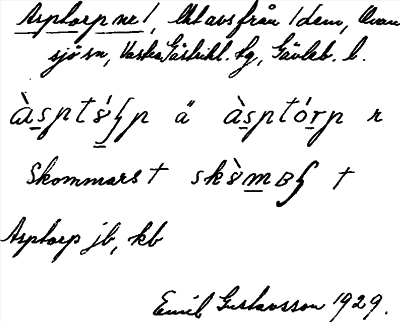 Asptorp ne/, Ukl avs från /dem, Ovan
sjö sn, Västra Gästrikl. tg, Gävleb. l.
àsptɤ́ɧp ä àsptórp n
Skommars † skɤ̀mʙɧ †
Asptorp jb, kb
Emil Gustavsson 1929.